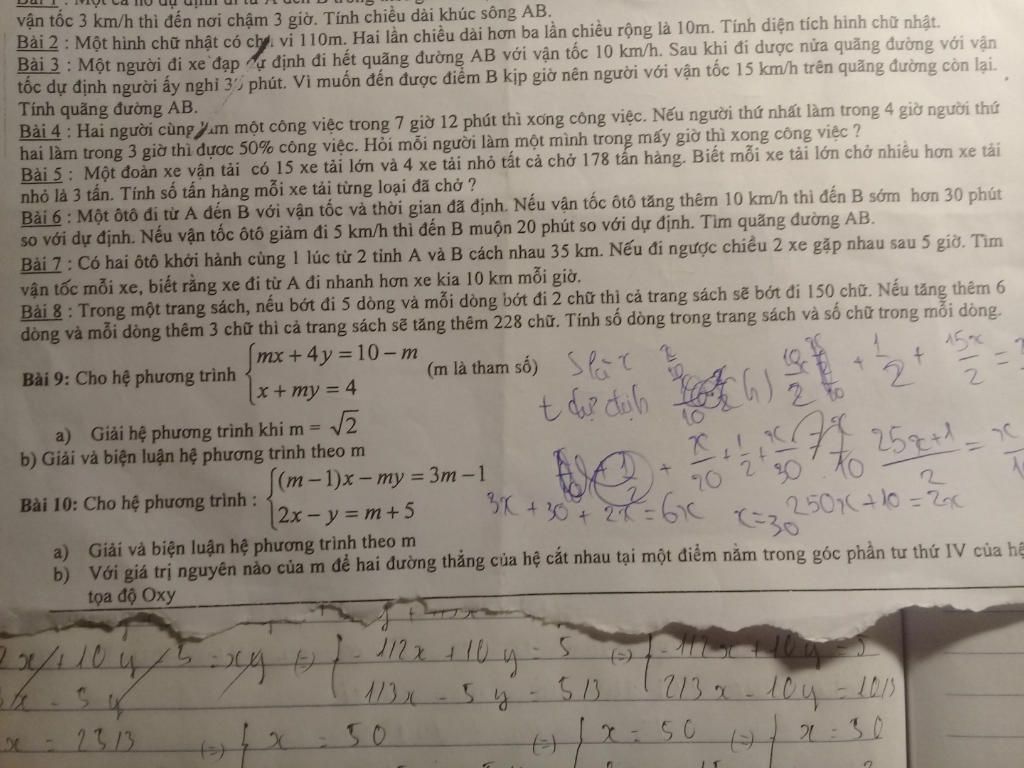 vận tốc 3 km/h thì đến nơi chậm 3 giờ. Tính chiều dài khúc sông AB.
Bài 2 : Một hình chữ nhật có chu vi 110m. Hai lần chiều dài hơn ba lần chiều rộng là 10m. Tính diện tích hình chữ nhật.
Bài 3 : Một người đi xe đạp dự định đi hết quãng đường AB với vận tốc 10 km/h. Sau khi đi dược nửa quãng đường với vận
tốc dự định người ấy nghỉ 30 phút. Vì muốn đến được điểm B kịp giờ nên người với vận tốc 15 km/h trên quãng đường còn lại.
Tính quãng đường AB.
Bài 4 : Hai người cùng làm một công việc trong 7 giờ 12 phút thì xong công việc. Nếu người thứ nhất làm trong 4 giờ người thứ
hai làm trong 3 giờ thì được 50% công việc. Hỏi mỗi người làm một mình trong mấy giờ thì xong công việc ?
Bài 5 : Một đoàn xe vận tải có 15 xe tải lớn và 4 xe tải nhỏ tất cả chở 178 tấn hàng. Biết mỗi xe tải lớn chở nhiều hơn xe tải
nhỏ là 3 tấn. Tính số tấn hàng mỗi xe tải từng loại đã chở ?
Bài 6 : Một ôtô đi từ A đến B với vận tốc và thời gian đã định. Nếu vận tốc ôtô tăng thêm 10 km/h thì đến B sớm hơn 30 phút
so với dự định. Nếu vận tốc ôtô giảm đi 5 km/h thì đến B muộn 20 phút so với dự định. Tìm quãng đường AB.
Bài 7 : Có hai ôtô khởi hành cùng 1 lúc từ 2 tỉnh A và B cách nhau 35 km. Nếu đi ngược chiều 2 xe gặp nhau sau 5 giờ. Tìm
vận tốc mỗi xe, biết rằng xe đi từ A đi nhanh hơn xe kia 10 km mỗi giờ.
Bài 8 : Trong một trang sách, nếu bớt đi 5 dòng và mỗi dòng bớt đi 2 chữ thì cả trang sách sẽ bớt đi 150 chữ. Nếu tăng thêm 6
dòng và mỗi dòng thêm 3 chữ thì cả trang sách sẽ tăng thêm 228 chữ. Tính số dòng trong trang sách và số chữ trong mỗi dòng.
mx + 4y = 10 − m
Bài 9: Cho hệ phương trình (m là tham số)
x + my = 4
t dự định
a) Giải hệ phương trình khi m = √2
b) Giải và biện luận hệ phương trình theo m
x/20 + 1/2 + x/30 = x/10
(m − 1)x − my = 3m − 1
Bài 10: Cho hệ phương trình :
2x − y = m + 5
3x + 30 + 2x = 6x
x = 30
250x + 10 = 2x
a) Giải và biện luận hệ phương trình theo m
b) Với giá trị nguyên nào của m để hai đường thẳng của hệ cắt nhau tại một điểm nằm trong góc phần tư thứ IV của hệ
tọa độ Oxy
- 1/2x + 10y = 5
1/3x - 5y = 5/3
2/3x - 10y = 10/3
x = 50
x = 50